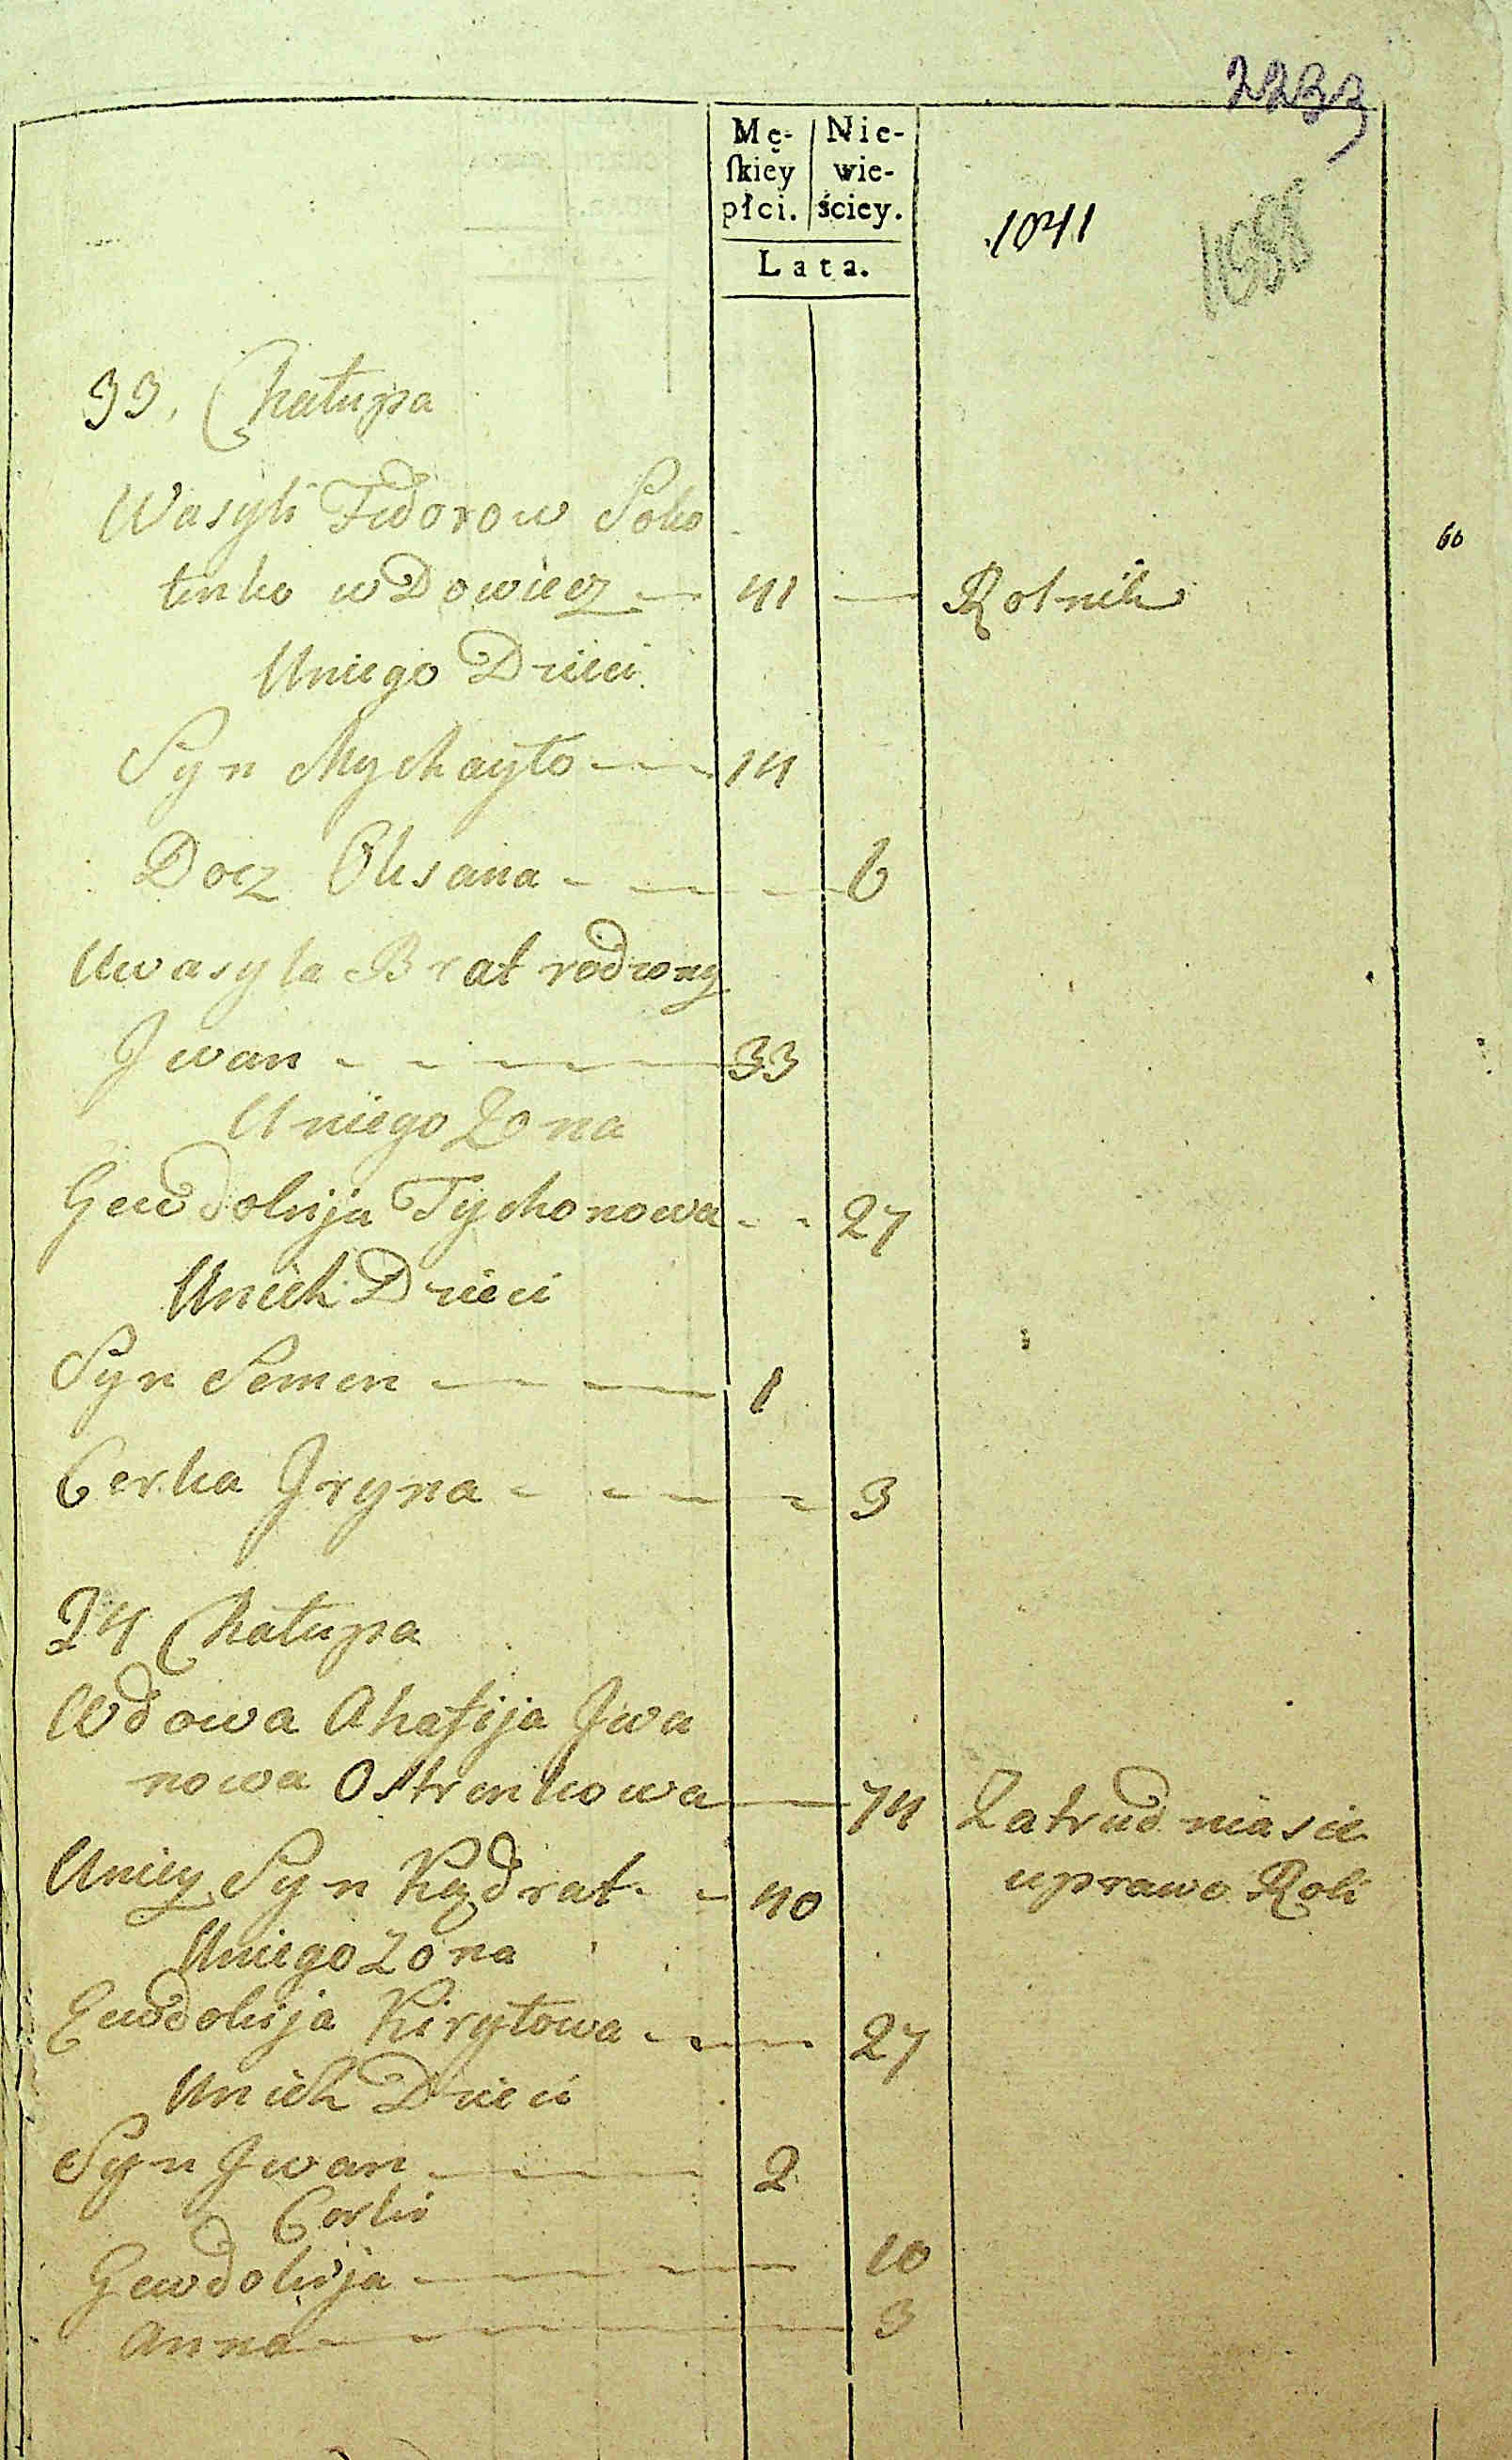 2233
Mę- Nie-
ſkiey wie-
płci. ściey.
Lata.
1041
33, Chałupa
Wasyli Fedorow Poko
tinko wDowiec — 41 — Rolnik
60
Uniego Dzieci
Syn Mychayło — 14
Docz Oksana — 6
Uwasyla Brat rodzony
Jwan — 33
Uniego Zona
Gewdokija Tychonowa — 27
Unich Dzieci
Syn Semen — 1
Corka Jryna — 3
34 Chałupa
Wdowa Ahafija Jwa
nowa Ostrenkowa — 74 Zatrudnia sie
Uniey Syn Kądrat — 40 uprawo Roli
Uniego Zona
Ewdokija Kiryłowa — 27
Unich Dzieci
Syn Jwan — 2
Corki
Gewdokija — 10
Anna — 3